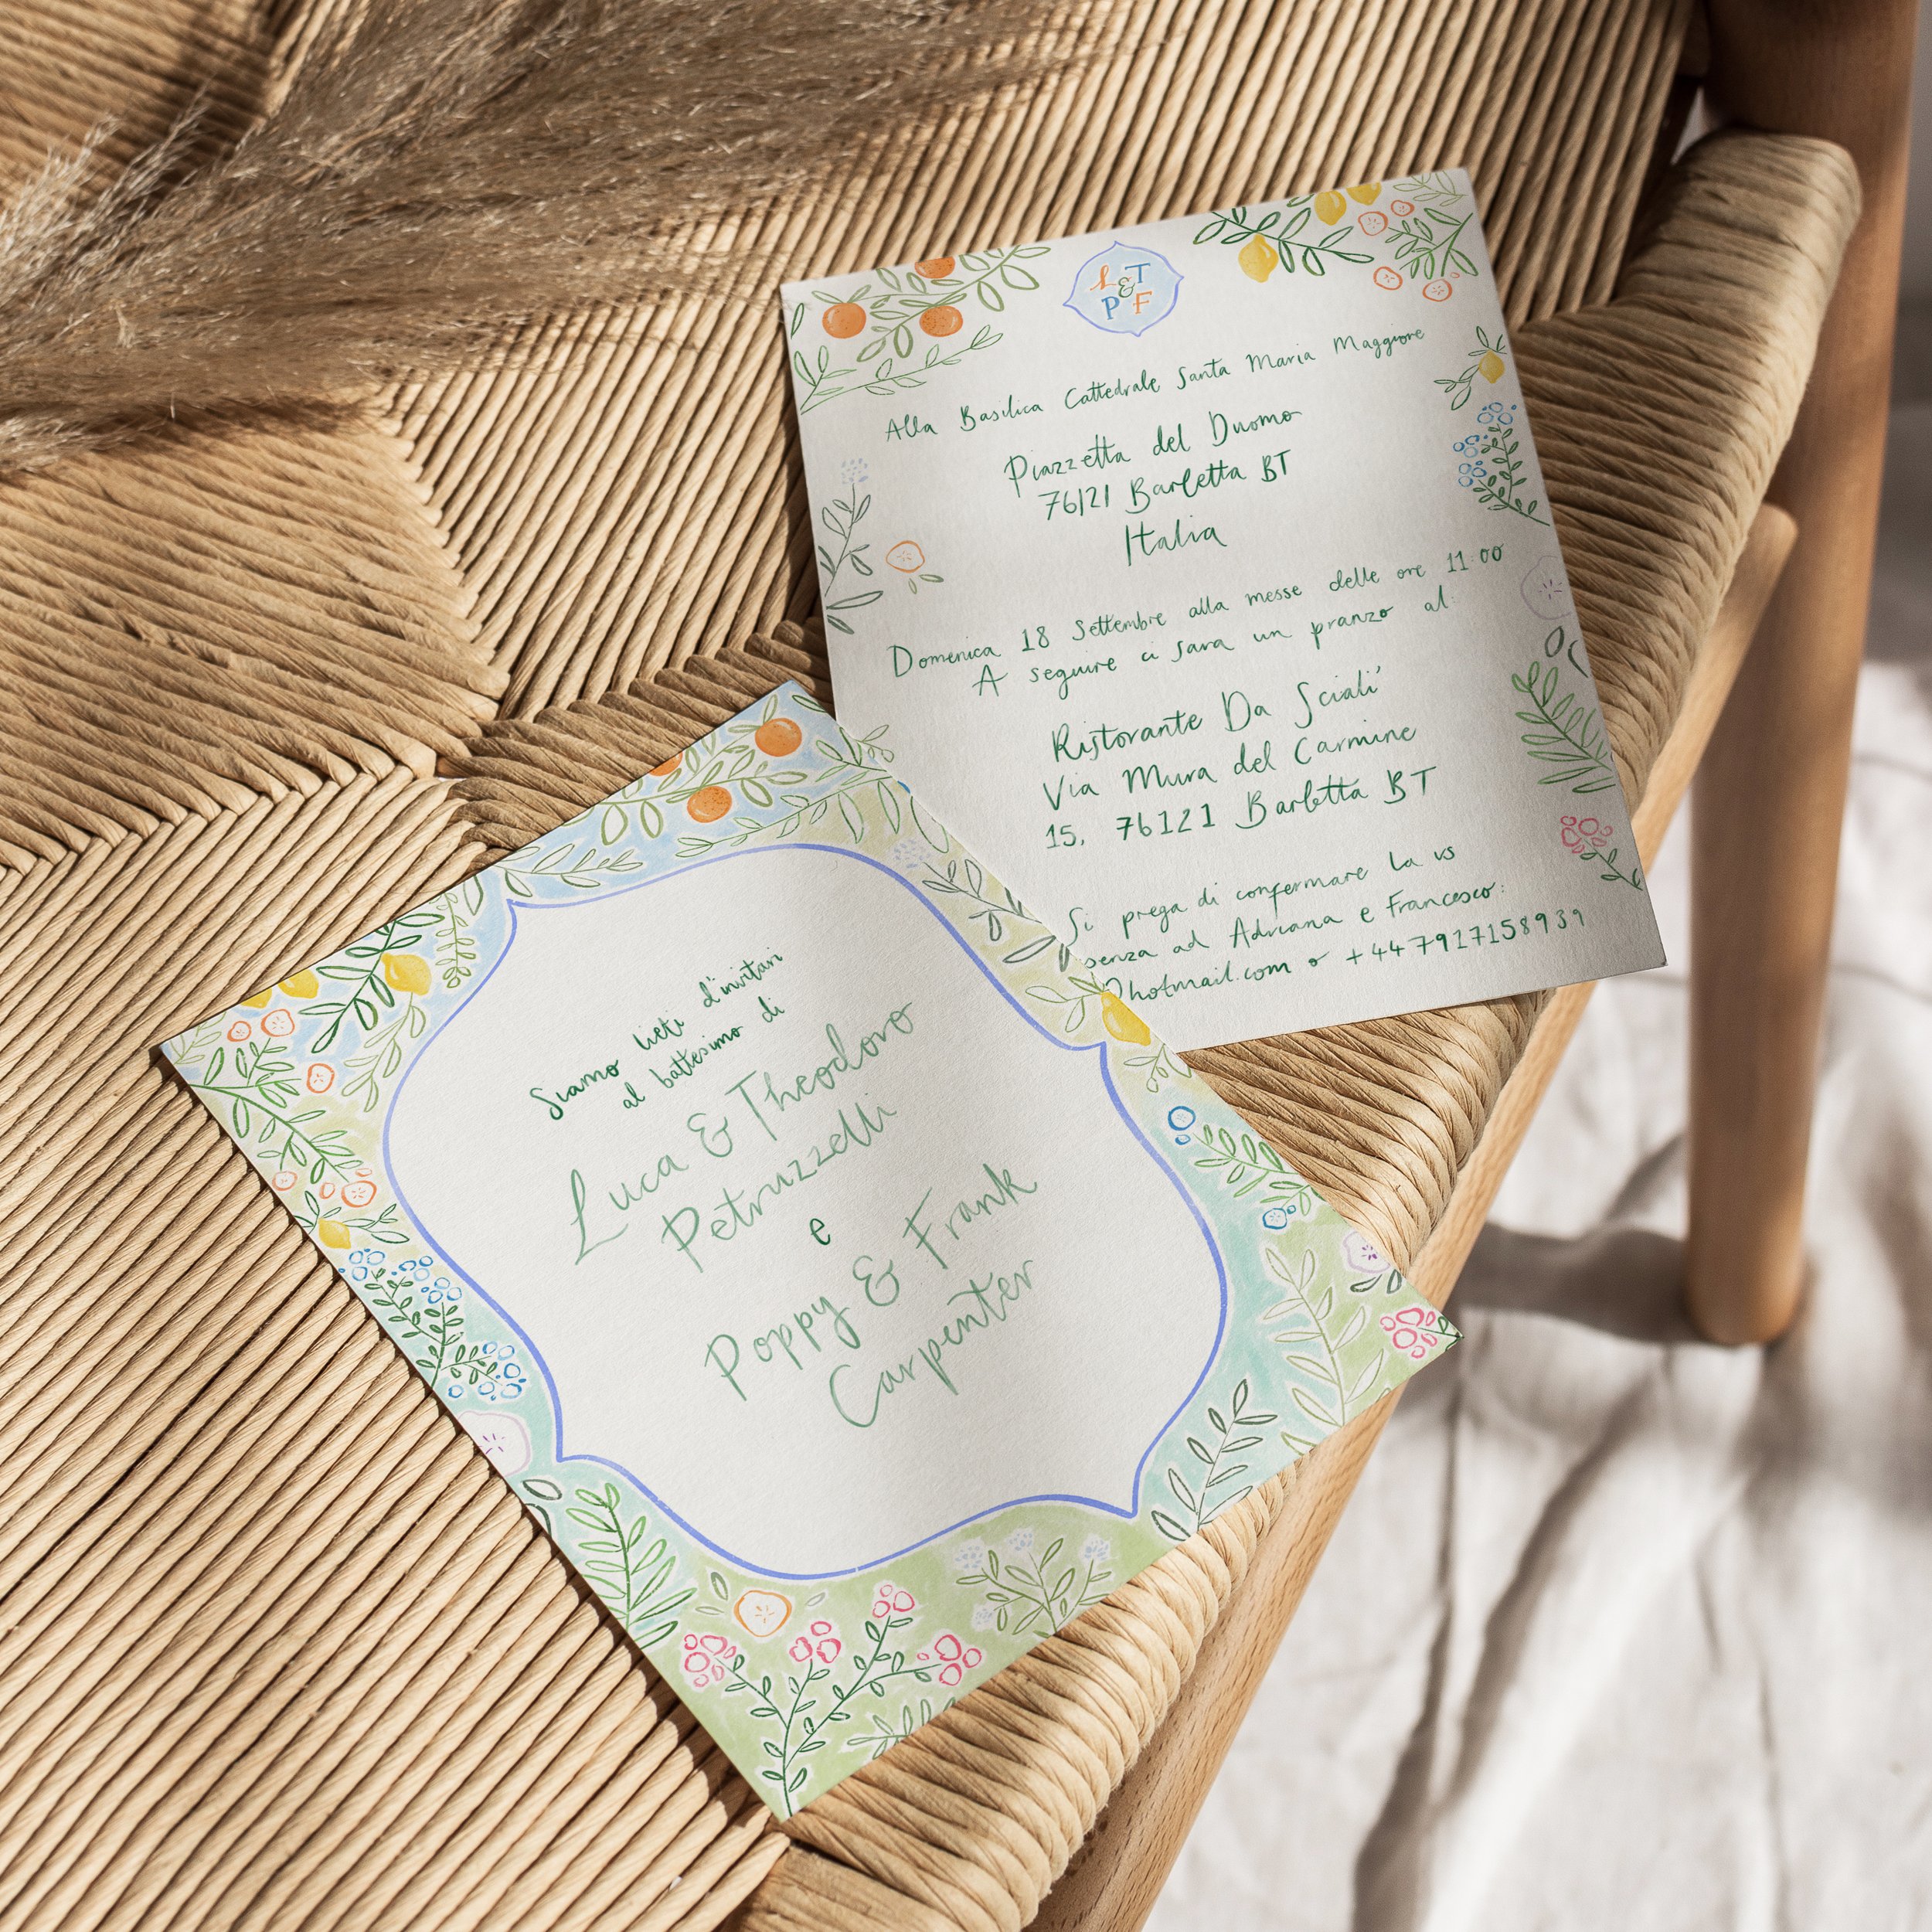 L & T
P F
Alla Basilica Cattedrale Santa Maria Maggiore
Piazzetta del Duomo
76121 Barletta BT
Italia
Domenica 18 Settembre alla messe delle ore 11:00
A seguire ci sara un pranzo al:
Ristorante Da Scialì
Via Mura del Carmine
15, 76121 Barletta BT
Si prega di confermare la vs
senza ad Adriana e Francesco:
@hotmail.com o +447917158939
Siamo lieti d'invitarvi
al battesimo di
Luca & Theodoro
Petruzzelli
e
Poppy & Frank
Carpenter